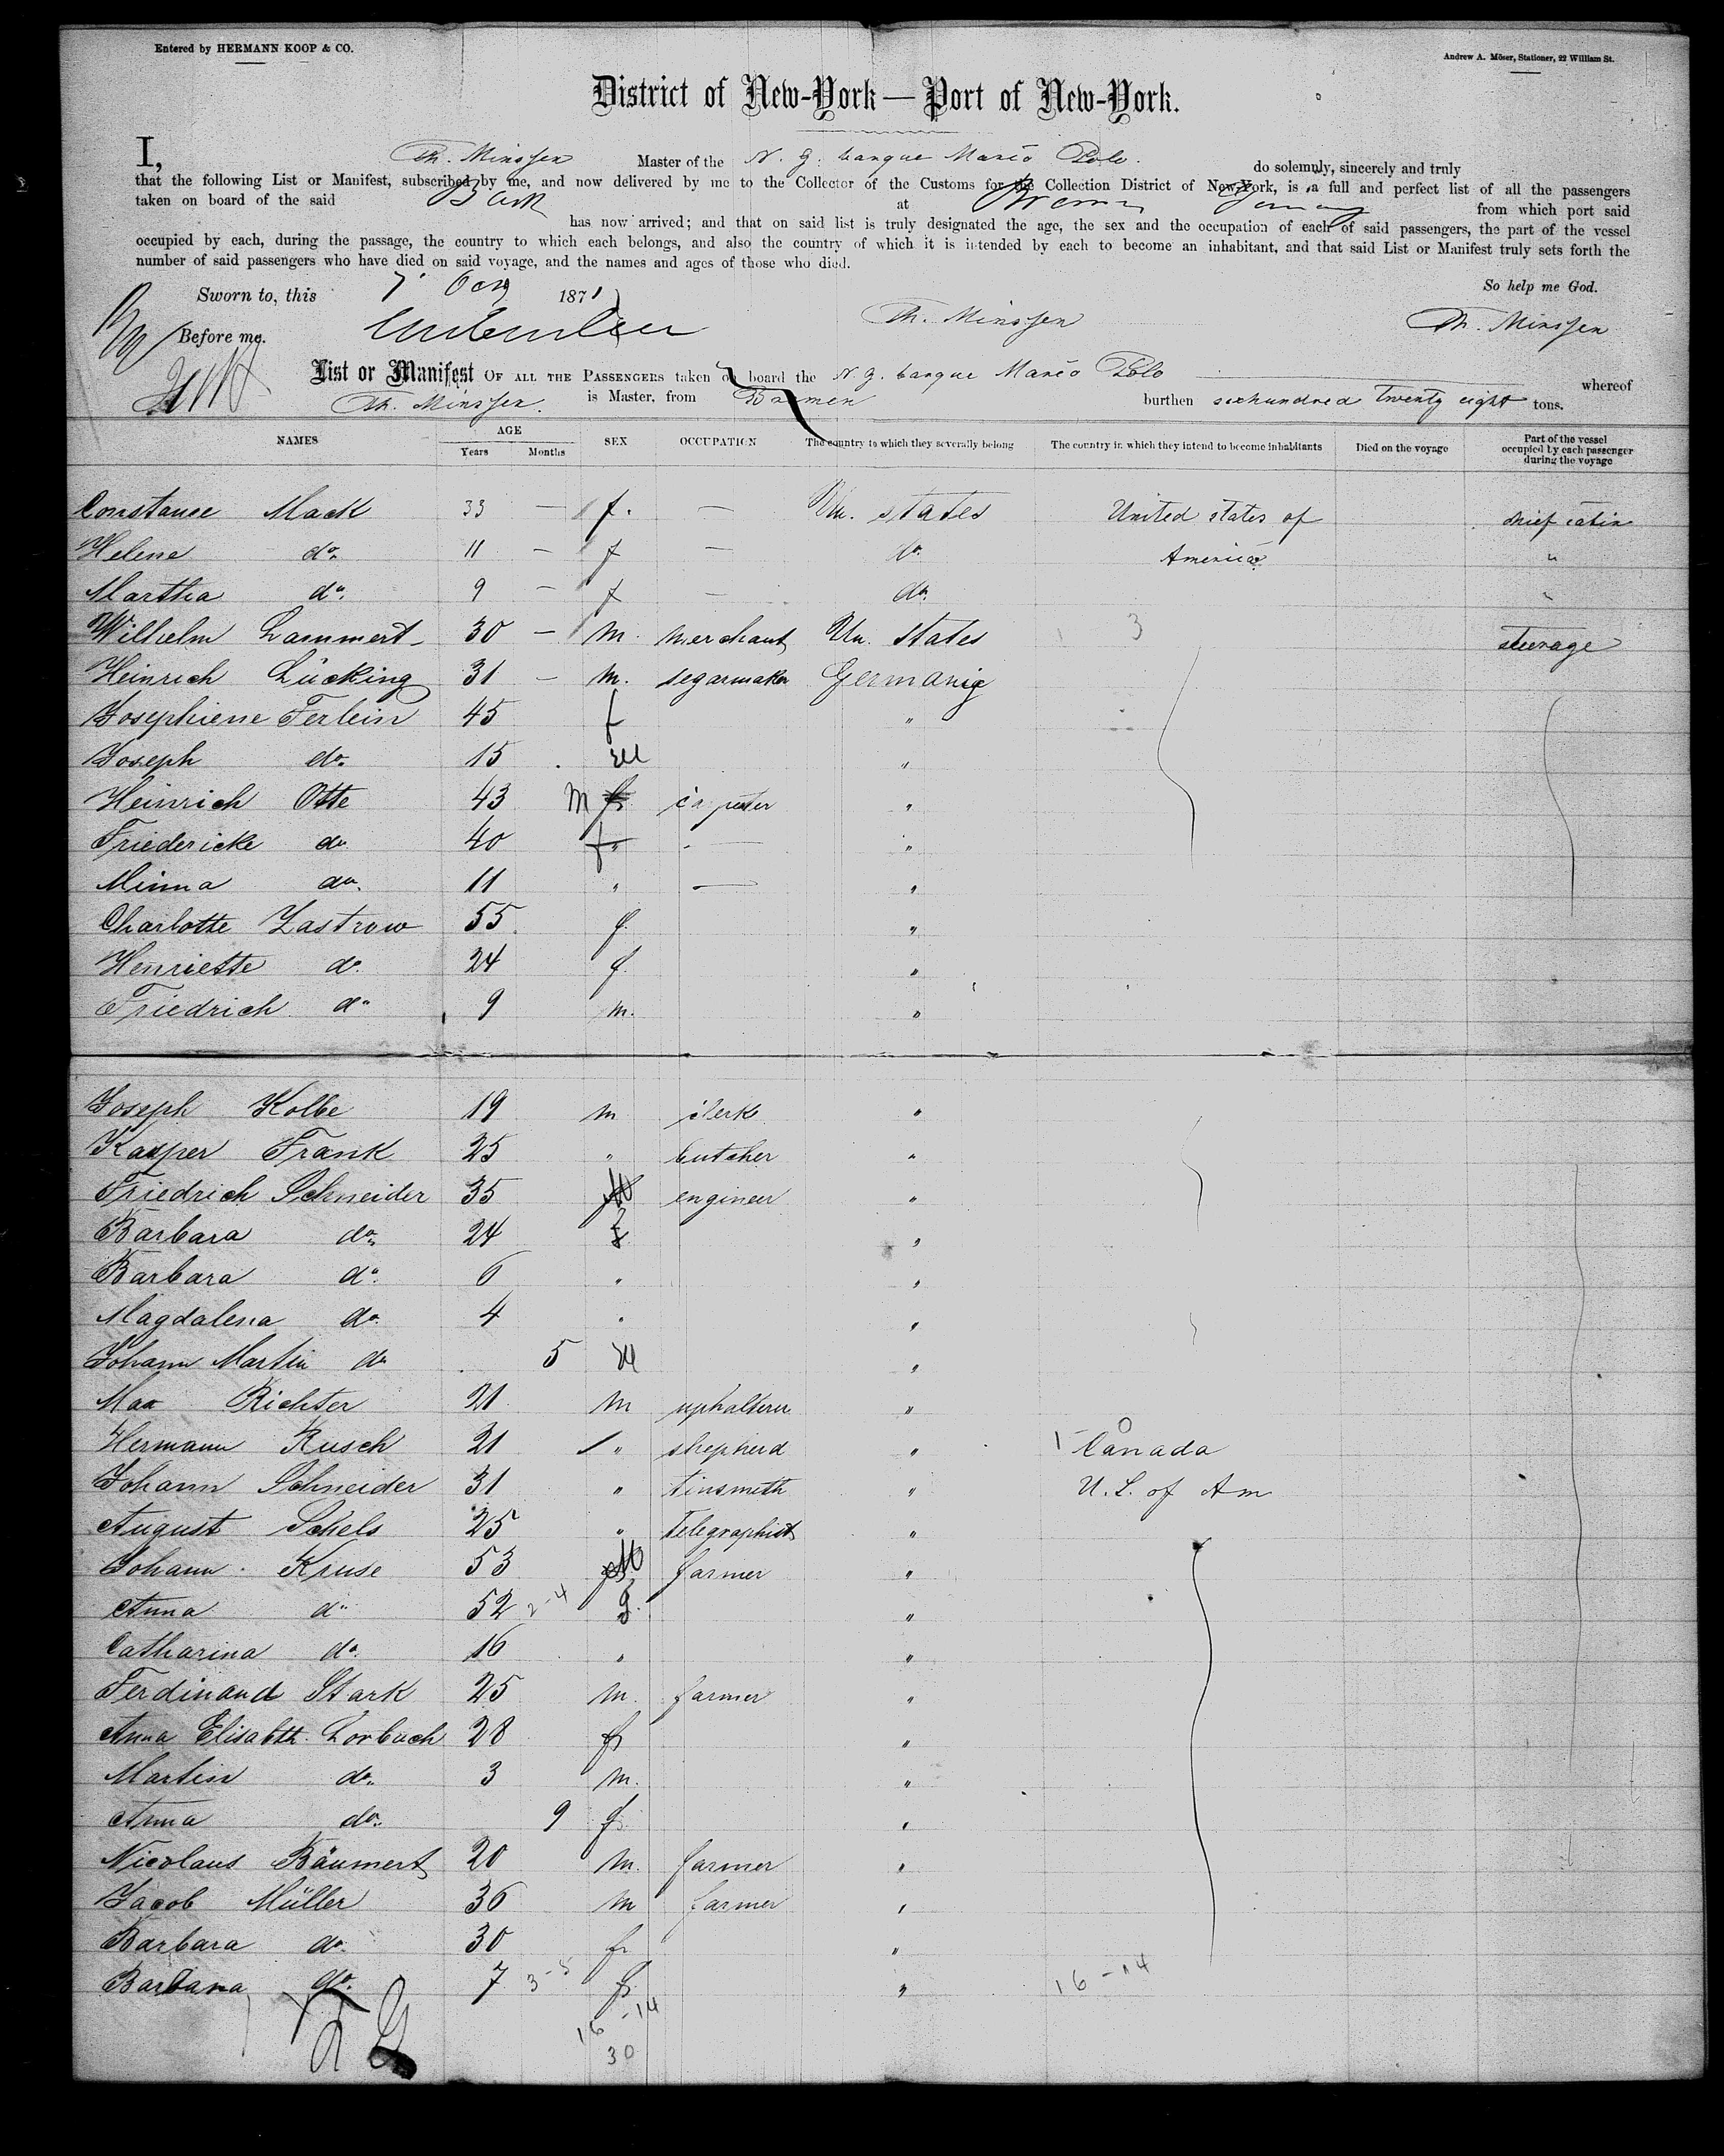 Entered by HERMANN KOOP & CO.
Andrew A. Möser, Stationer, 22 William St.
District of New-York — Port of New-York.
I, Th. Minssen Master of the N. g. barque Marco Polo. do solemnly, sincerely and truly
that the following List or Manifest, subscribed by me, and now delivered by me to the Collector of the Customs for the Collection District of New-York, is a full and perfect list of all the passengers
taken on board of the said Bark at Bremen Germany from which port said
has now arrived; and that on said list is truly designated the age, the sex and the occupation of each of said passengers, the part of the vessel
occupied by each, during the passage, the country to which each belongs, and also the country of which it is intended by each to become an inhabitant, and that said List or Manifest truly sets forth the
number of said passengers who have died on said voyage, and the names and ages of those who died.
So help me God.
Sworn to, this 7 1871
Th. Minssen Th. Minssen
Before me.
List or Manifest OF ALL THE PASSENGERS taken on board the N. g. barque Marco Polo whereof
Th. Minssen. is Master, from Bremen burthen sixhundred twenty eight tons.
NAMES AGE Years Months SEX OCCUPATION The country to which they severally belong The country in which they intend to become inhabitants Died on the voyage Part of the vessel occupied by each passenger during the voyage
Constance Mack 33 — f. — Un. states United states of chief cabin
Helene do. 11 — f — do. America "
Martha do. 9 — f — do. "
Wilhelm Lammert 30 — m. merchant Un. States 3 steerage
Heinrich Lücking 31 — m. segarmaker Germanie
Josephiene Ferlein 45 f "
Joseph do. 15 M "
Heinrich Otte 43 M "
Friedericke do. 40 f " — "
Minna do. 11 " — "
Charlotte Zastrow 55. f. "
Henriette do. 24 f. "
Friedrich do. 9 m. "
Joseph Kolbe 19 m clerk "
Kasper Frank 25 " butcher "
Friedrich Schneider 35 M engineer "
Barbara do. 24 f "
Barbara do. 6 " "
Magdalena do. 4 " "
Johann Martin do 5 M "
Max Richter 21 m upholterer "
Hermann Rusch 21 " shepherd " 1 Canada
Johann Schneider 31 " tinsmith " U. S. of Am
August Schels 25 " Telegraphist "
Johann Kruse 53 M farmer "
Anna do. 52 2-4 f. "
Catharina do. 16 " "
Ferdinand Stark 25 m. farmer "
Anna Elisabth. Lorbach 28 f "
Martin do. 3 m. "
Anna do. 9 f "
Nicolaus Bäumert 20 m. farmer "
Jacob Müller 36 m farmer "
Barbara do. 30 f "
Barbara do. 7 3-5 f. " 16-14
16-14
30